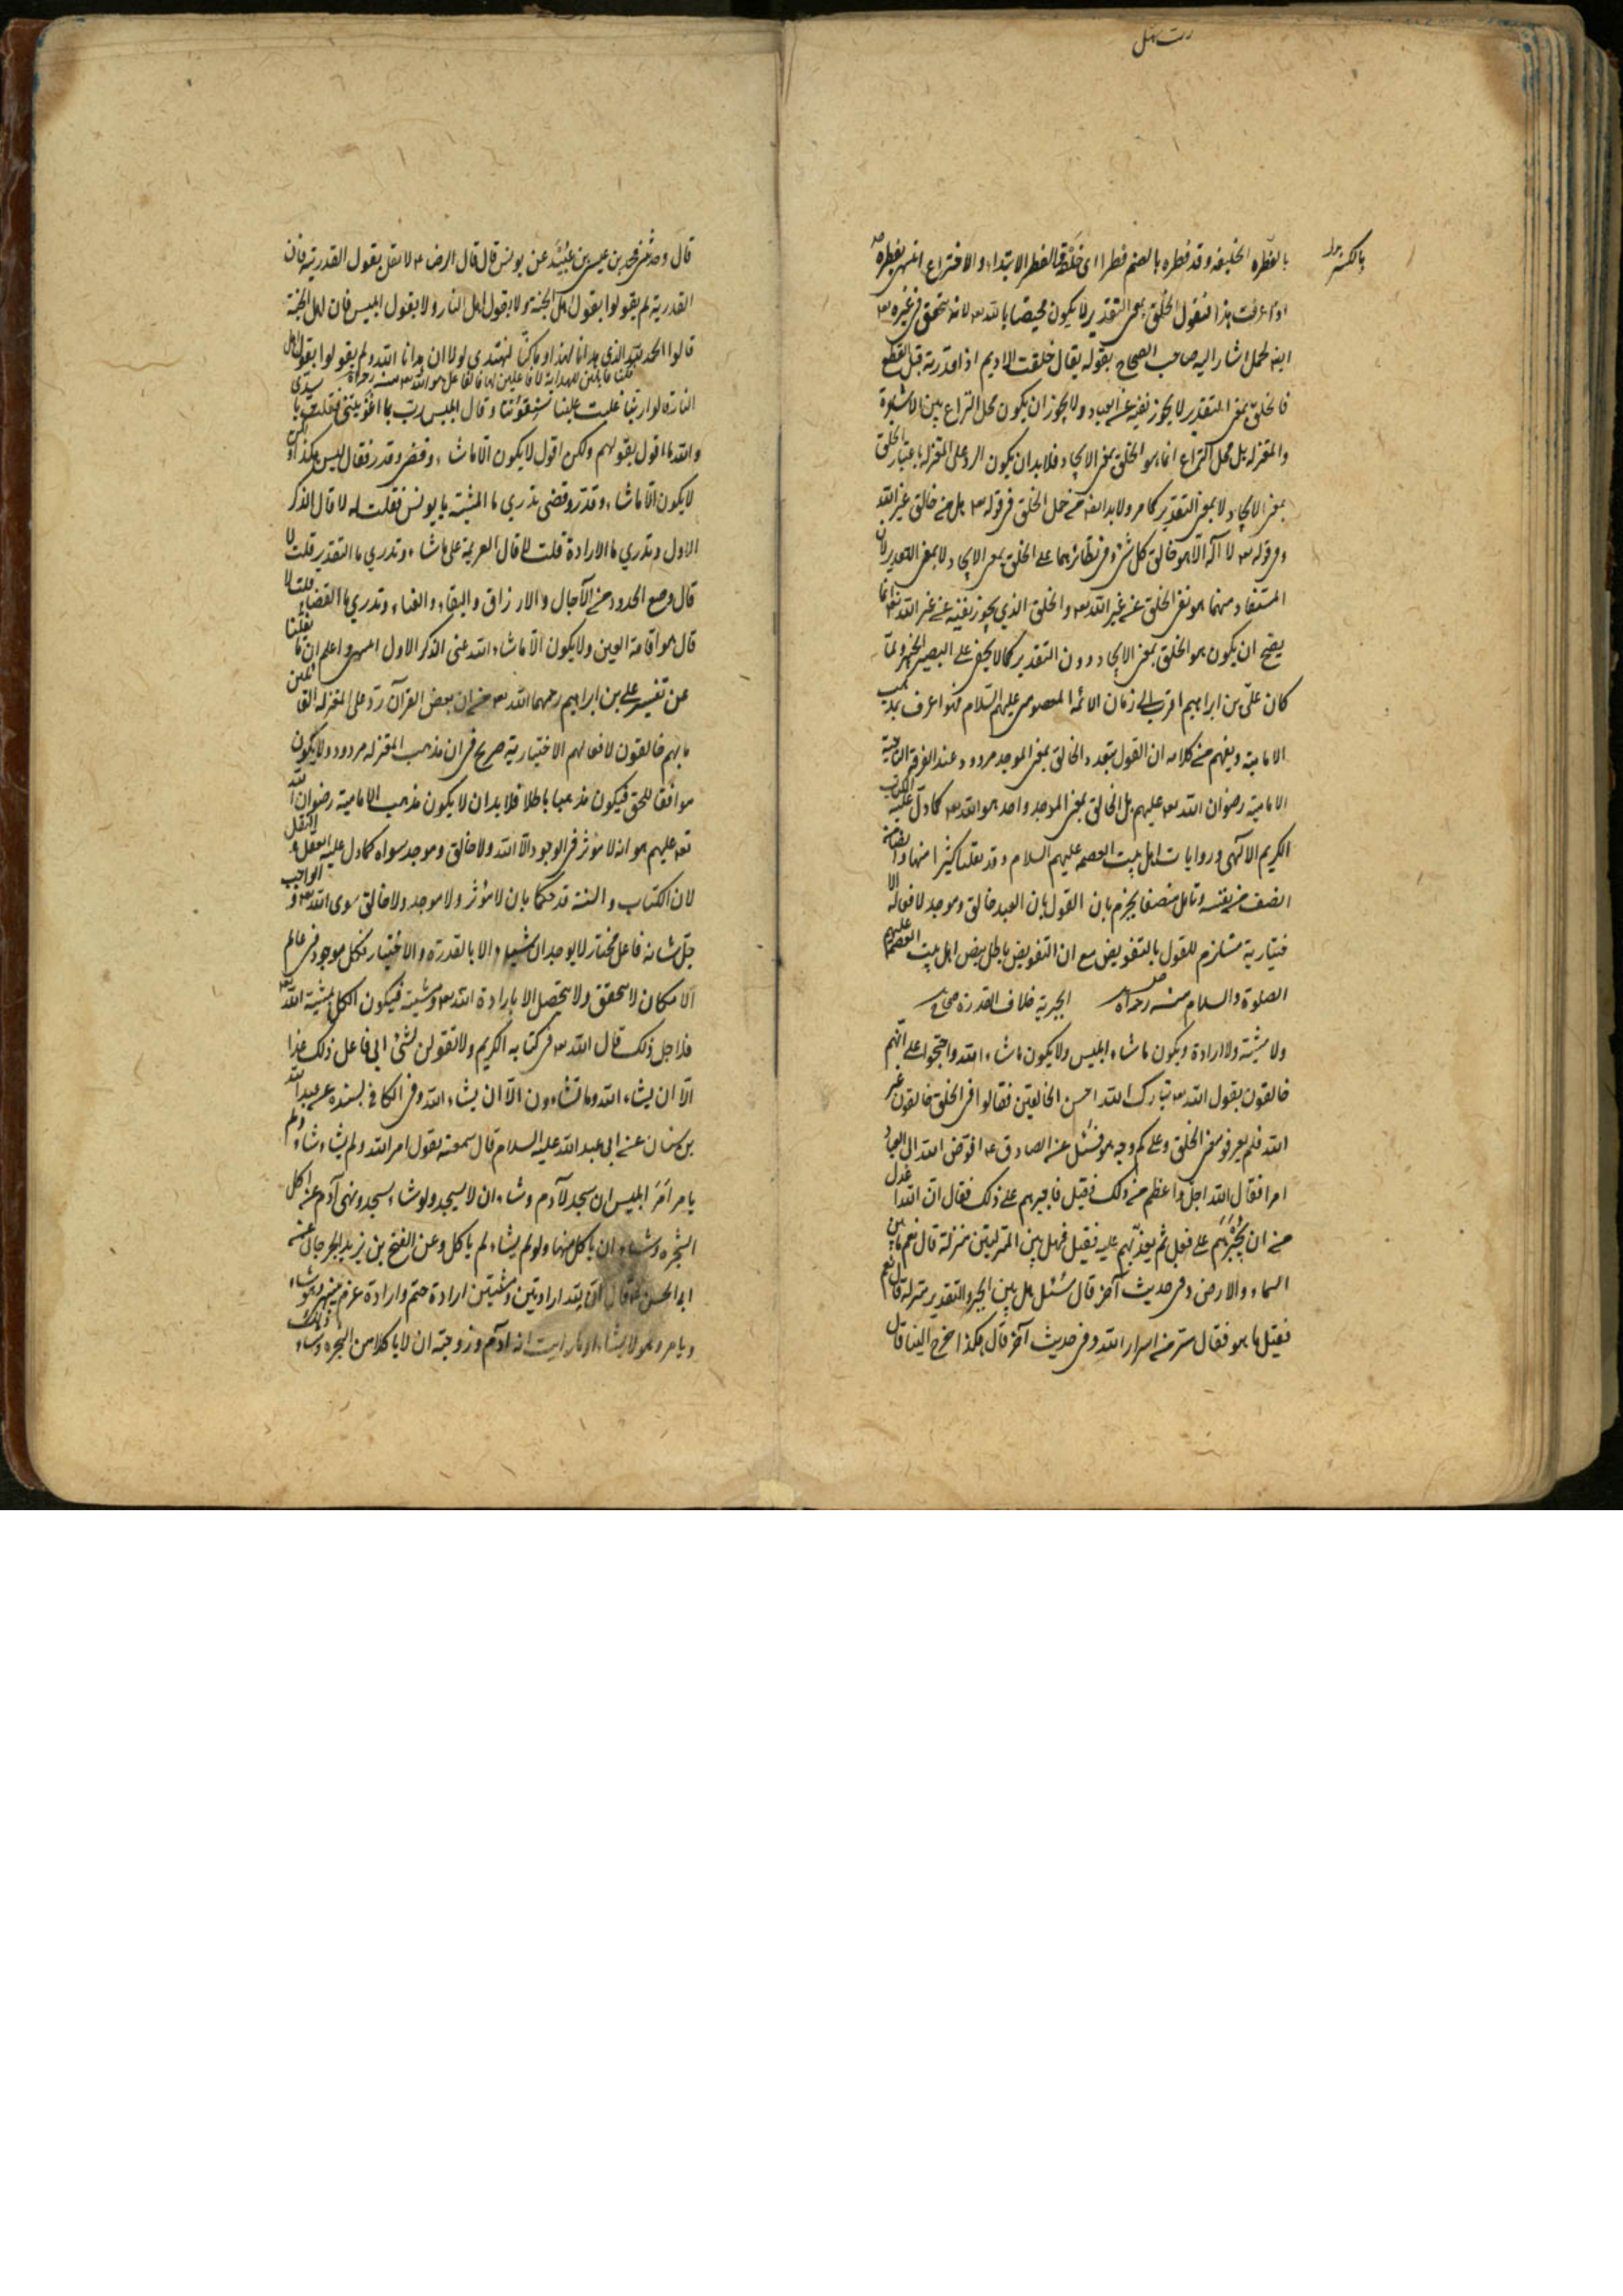 بالفطرة الخليفه وقد فطره بالضم فطرا اى خلقه والفطر الابتداء والاختراع انتهى
اذا عرفت هذا فنقول الخلق بمعنى التقدير لا يكون مختصا بالله تعه لانه يتحقق فى غيره تعه
ايضا كما اشار اليه صاحب الصحاح بقوله يقال خلقت الاديم اذا قدرته قبل القطع
فالخلق بمعنى التقدير لا يجوز نفيه عن العباد ولا يجوز ان يكون محل النزاع بين الاشاعرة
والمعتزله بل محل النزاع انما هو الخلق بمعنى الايجاد فلابد ان يكون الرد على المعتزله باعتبار الخلق
بمعنى الايجاد لا بمعنى التقدير كما مر ولابد ايضا من حمل الخلق فى قوله تعه هل من خالق غير الله
وفى قوله تعه لا اله الا هو خالق كل شئ وفى نظائرهما على الخلق بمعنى الايجاد لا بمعنى التقدير لان
المستفاد منهما هو نفى الخلق عن غير الله تعه والخلق الذى يجوز نفيه عن غير الله تعه انما
يصح ان يكون هو الخلق بمعنى الايجاد دون التقدير كما لا يخفى على البصير الخبير ولما
كان على بن ابراهيم اقرب الى زمان الائمة المعصومين عليهم السلام فهو اعرف بمذهب
الامامية ويفهم من كلامه ان القول بتعدد الخالق بمعنى الموجد مردود عند الفرقة الناجية
الامامية رضوان الله تعه عليهم بل الخالق بمعنى الموجد واحد هو الله تعه كما دل عليه الكتاب
الكريم الالهى وروايات اهل بيت العصمه عليهم السلام وقد نقلنا كثيرا منها وايضا من
انصف من نفسه وتامل منصفا يجزم بان القول بان العبد خالق وموجد لافعاله الا
ختيارية مستلزم للقول بالتفويض مع ان التفويض باطل بنص اهل بيت العصمة عليهم
الصلوة والسلام منه رحمه الله الجبرية خلاف القدرة صحاح
ولا مشية ولا ارادة ويكون ما شاء ابليس ولا يكون ما شاء الله واحتجوا على انهم
خالقون بقول الله تعه تبارك الله احسن الخالقين فقالوا فى الخلق خالقون غير
الله فلم يعرفوا معنى الخلق وعلى كم وجه هو فسئل عنه الصادق ع افوض الله الى العباد
امرا فقال الله اجل واعظم من ذلك فقيل فاجبرهم على ذلك فقال ان الله اعدل
من ان يجبرهم على فعل ثم يعذبهم عليه فقيل فهل بين المنزلتين منزلة قال نعم ما بين
السماء والارض وفى حديث آخر قال سئل هل بين الجبر والتقدير منزلة قال نعم
فقيل ما هو فقال سر من اسرار الله وفى حديث آخر قال هكذا خرج الينا قال
قال وحدثنى محمد بن عيسى بن عبيد عن يونس قال قال الرضا ع لا تقل بقول القدرية فان
القدرية لم يقولوا بقول اهل الجنة ولا بقول اهل النار ولا بقول ابليس فان اهل الجنة
قالوا الحمد لله الذى هدانا لهذا وما كنا لنهتدى لولا ان هدانا الله ولم يقولوا بقول اهل
النار قالوا ربنا غلبت علينا شقوتنا وقال ابليس رب بما اغويتنى فقلت يا سيدى
والله ما اقول بقولهم ولكن اقول لا يكون الا ما شاء وقضى وقدر فقال ليس هكذا
لا يكون الا ما شاء وقدر وقضى تدرى ما المشية يا يونس فقلت لا قال الذكر
الاول وتدرى ما الارادة قلت لا قال العزيمة على ما شاء وتدرى ما التقدير قلت لا
قال وضع الحدود من الآجال والارزاق والبقاء والفناء وتدرى ما القضاء قلت لا
قال هو اقامة العين ولا يكون الا ما شاء الله عنى الذكر الاول انتهى واعلم ان ما نقلنا
عن تفسير على بن ابراهيم رحمهما الله تعه من ان بعض القرآن رد على المعتزله القائلين
بانهم خالقون لافعالهم الاختيارية صريح فى ان مذهب المعتزله مردود ولا يكون
موافقا للحق فيكون مذهبا باطلا فلابد ان لا يكون مذهب الامامية رضوان الله
تعه عليهم هو انه لا مؤثر فى الوجود الا الله ولا خالق وموجد سواه كما دل عليه العقل والنقل
لان الكتاب والسنة قد حكما بان لا مؤثر ولا موجد ولا خالق سوى الله تعه والواجب
جل شانه فاعل مختار لا يوجد الاشياء الا بالقدرة والاختيار فكل موجود فى عالم
الامكان لا يتحقق ولا يتحصل الا بارادة الله تعه ومشيته فيكون الكل بمشية الله تعه
فلاجل ذلك قال الله تعه فى كتابه الكريم ولا تقولن لشئ انى فاعل ذلك غدا
الا ان يشاء الله وما تشاءون الا ان يشاء الله وفى الكافى بسنده عن عبد الله
بن سنان عن ابى عبد الله عليه السلام قال سمعته يقول امر الله ولم يشاء وشاء ولم
يامر امر ابليس ان يسجد لآدم وشاء ان لا يسجد ولو شاء لسجد ونهى آدم عن اكل
الشجره وشاء ان ياكل منها ولو لم يشاء لم ياكل وعن الفتح بن يزيد الجرجانى عن
ابى الحسن ع قال ان لله ارادتين ومشيتين ارادة حتم وارادة عزم ينهى وهو يشاء
ويامر وهو لا يشاء او ما رايت انه نهى آدم وزوجته ان لا ياكلا من الشجره وشاء ذلك